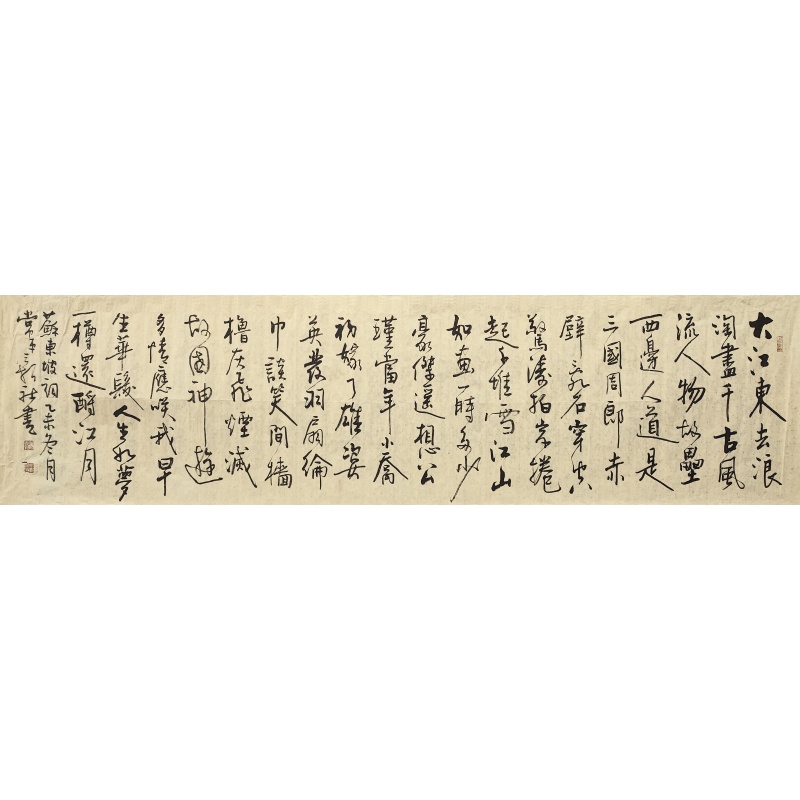 大江東去浪
淘盡千古風
流人物故壘
西邊人道是
三國周郎赤
壁亂石穿空
驚濤拍岸捲
起千堆雪江山
如畫一時多少
豪傑遥想公
瑾當年小喬
初嫁了雄姿
英發羽扇綸
巾談笑間檣
櫓灰飛煙滅
故國神遊
多情應咲我早
生華髮人生如夢
一樽還酹江月
蘇東坡詞乙未冬月
書